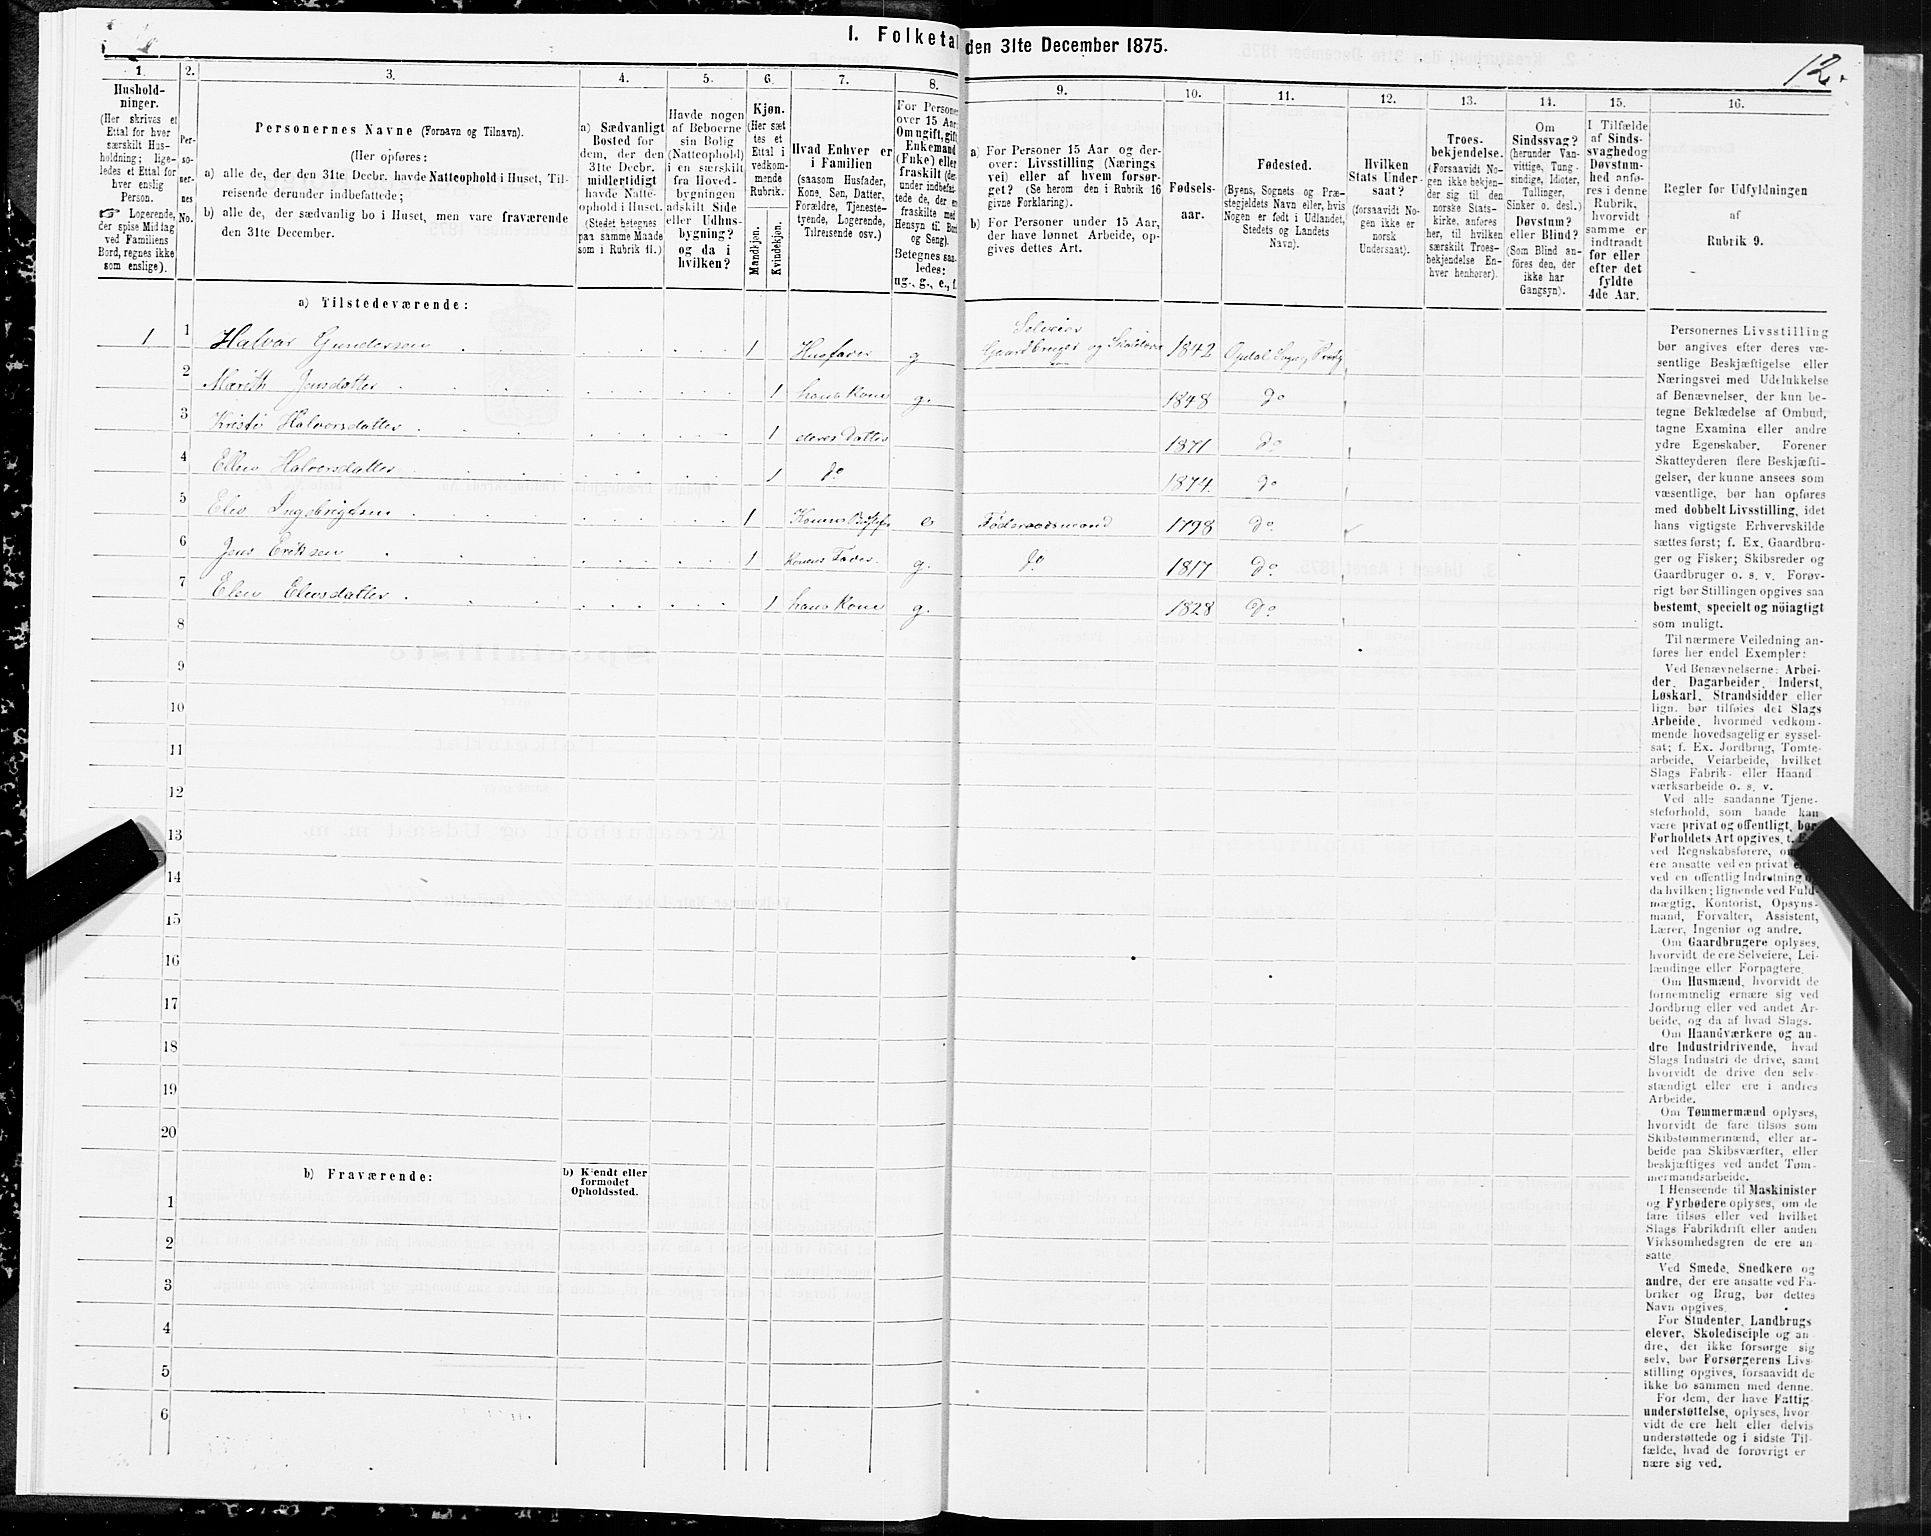 1. Folketal den 31te December 1875.
12.
1. 2. 3. 4. 5. 6. 7. 8. 9. 10. 11. 12. 13. 14. 15. 16.
Hushold-
ninger.
(Her skrives et
Ettal for hver
særskilt Hus-
holdning; lige-
ledes et Ettal for
hver enslig
Person.
☞ Logerende,
der spise Middag
ved Familiens
Bord, regnes ikke
som enslige).
Per-
so-
ner-
nes
No.
Personernes Navne (Fornavn og Tilnavn).
(Her opføres:
a) alle de, der den 31te Decbr. havde Natteophold i Huset, Til-
reisende derunder indbefattede;
b) alle de, der sædvanlig bo i Huset, men vare fraværende
den 31te December.
a) Sædvanligt
Bosted for
dem, der den
31te Decbr.
midlertidigt
havde Natte-
ophold i Huset.
(Stedet betegnes
paa samme Maade
som i Rubrik 11.)
Havde nogen
af Beboerne
sin Bolig
(Natteophold)
i en særskilt
fra Hoved-
bygningen
adskilt Side
eller Udhus-
bygning?
og da i
hvilken?
Kjøn.
(Her sæt
tes et
Ettal i
vedkom-
mende
Rubrik.
Mandkjøn.
Kvindekjøn.
Hvad Enhver er
i Familien
(saasom Husfader,
Kone, Søn, Datter,
Forældre, Tjeneste-
tyende, Logerende,
Tilreisende osv.)
For Personer
over 15 Aar:
Om ugift, gift,
Enkemand
(Enke) eller
fraskilt (der-
under indbefat-
tede de, der ere
fraskilte med
Hensyn til Bord
og Seng).
Betegnes saa-
ledes:
ug., g., e., f.
a) For Personer 15 Aar og der-
over: Livsstilling (Nærings
vei) eller af hvem forsør-
get? (Se herom den i Rubrik 16
givne Forklaring).
b) For Personer under 15 Aar,
der have lønnet Arbeide, op-
gives dettes Art.
Fødsels-
aar.
Fødested.
(Byens, Sognets og Præ-
stegjeldets Navn eller, hvis
Nogen er født i Udlandet,
Stedets og Landets
Navn).
Hvilken
Stats Under-
saat?
(forsaavidt No-
gen ikke er
norsk
Undersaat).
Troes-
bekjendelse.
(Forsaavidt No-
gen ikke bekjen-
der sig til den
norske Stats-
kirke, anføres
her, til hvilken
særskilt Troes-
bekjendelse En-
hver henhører).
Om
Sindssvag?
(herunder Van-
vittige, Tung-
sindige, Idioter,
Tullinger,
Sinker o. desl.)
Døvstum?
eller Blind?
(Som Blind an-
føres den, der
ikke har
Gangsyn).
I Tilfælde
af Sinds-
svaghed og
Døvstum-
hed anfø-
res i denne
Rubrik,
hvorvidt
samme er
indtraadt
før eller
efter det
fyldte
4de Aar.
Regler for Udfyldningen
af
Rubrik 9.
a) Tilstedeværende:
1 1 Halvor Gundersen 1 Husfader g Selveier Gaardbruger og 1842 Opdal Sogn,
2 Marith Jensdatter 1 hans Kone g. 1848 do
3 Kristi Halvorsdatter 1 deres Datter 1871 do
4 Ellen Halvorsdatter 1 do 1874 do
5 Elev Ingebrigtsen 1 Konens e Føderaadsmand 1798 do
6 Jens Eriksen 1 Konens Fader g. do 1817 do
7 Elen Elevsdatter 1 hans Kone g. 1828 do
8
9
10
11
12
13
14
15
16
17
18
19
20
b) Fraværende:
b) Kjendt eller
formodet
Opholdssted.
1
2
3
4
5
6
Personernes Livsstilling
bør angives efter deres væ-
sentlige Beskjæftigelse eller
Næringsvei med Udelukkelse
af Benævnelser, der kun be-
tegne Beklædelse af Ombud,
tagne Examina eller andre
ydre Egenskaber. Forener
Skatteyderen flere Beskjæfti-
gelser, der kunne ansees som
væsentlige, bør han opføres
med dobbelt Livsstilling, idet
hans vigtigste Erhvervskilde
sættes først; f. Ex. Gaardbru-
ger og Fisker; Skibsreder og
Gaardbruger o. s. v. Forøv-
rigt bør Stillingen opgives saa
bestemt, specielt og nöiagtigt
som muligt.
Til nærmere Veiledning an-
føres her endel Exempler:
Ved Benævnelserne: Arbei-
der, Dagarbeider, Inderst,
Løskarl, Strandsidder eller
lign. bør tilføies det Slags
Arbeide, hvormed vedkom-
mende hovedsagelig er syssel-
sat; f. Ex. Jordbrug, Tomte-
arbeide, Veiarbeide, hvilket
Slags Fabrik- eller Haand
værksarbeide o. s. v.
Ved alle saadanne Tjene-
steforhold, som baade kan
være privat og offentligt, bør
Forholdets Art opgives, t. E
ved Regnskabsførere, om
ere ansatte ved en privat
ved en offentlig Indretning
da hvilken; lignende ved Fuld-
mægtig, Kontorist, Opsyns-
mand, Forvalter, Assistent,
Lærer, Ingeniør og andre.
Om Gaardbrugere oplyses,
hvorvidt de ere Selveiere, Lei-
lændinge eller Forpagtere.
Om Husmænd, hvorvidt de
fornemmelig ernære sig ved
Jordbrug eller ved andet Ar-
beide, og da af hvad Slags.
Om Haandværkere og an-
dre Industridrivende, hvad
Slags Industri de drive, samt
hvorvidt de drive den selv-
stændigt eller ere i andres
Arbeide.
Om Tømmermænd oplyses,
hvorvidt de fare tilsøs som
Skibstømmermænd, eller ar-
beide paa Skibsværfter, eller
beskjæftiges ved andet Tøm-
mermandsarbeide.
I Henseende til Maskinister
og Fyrbødere oplyses, om de
fare tilsøs eller ved hvilket
Slags Fabrikdrift eller anden
Virksomhedsgren de ere an-
satte.
Ved Smede, Snedkere og
andre, der ere ansatte ved Fa-
briker og Brug, bør dettes
Navn opgives.
For Studenter, Landbrugs
elever, Skoledisciple og an
dre, der ikke forsørge sig
selv, bør Forsørgerens Livs-
stilling opgives, forsaavidt de
ikke bo sammen med denne.
For dem, der have Fattig
understøttelse, oplyses, hvor
vidt de ere helt eller delvis
understøttede og i sidste Til-
fælde, hvad de forøvrigt er
nære sig ved.